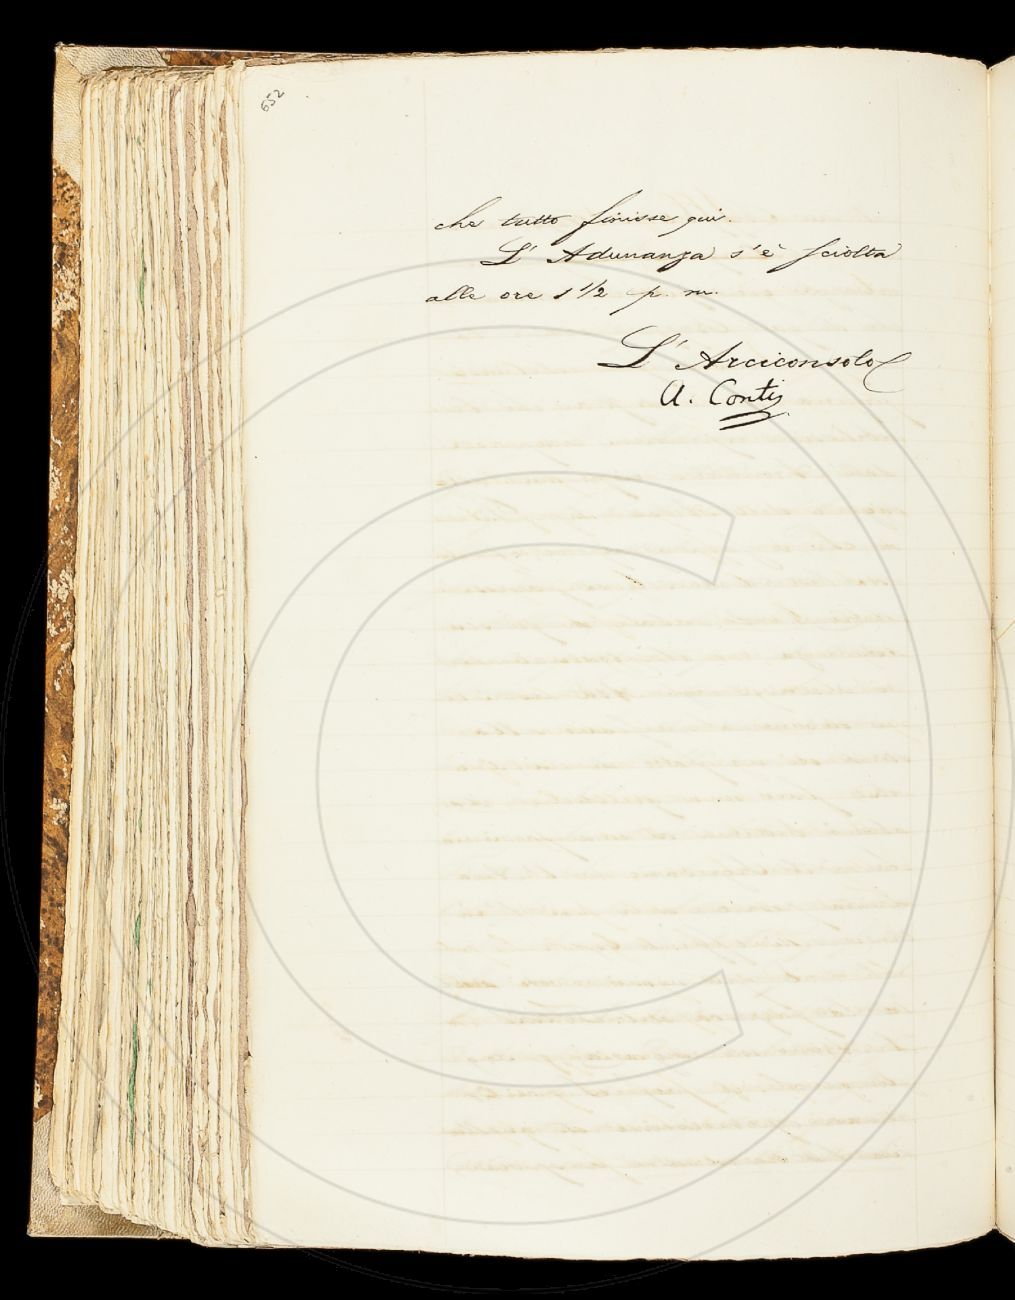 652
che tutto finisse qui.
L' Adunanza s'è sciolta
alle ore 1 1/2 p. m.
L' Arciconsolo
A. Conti